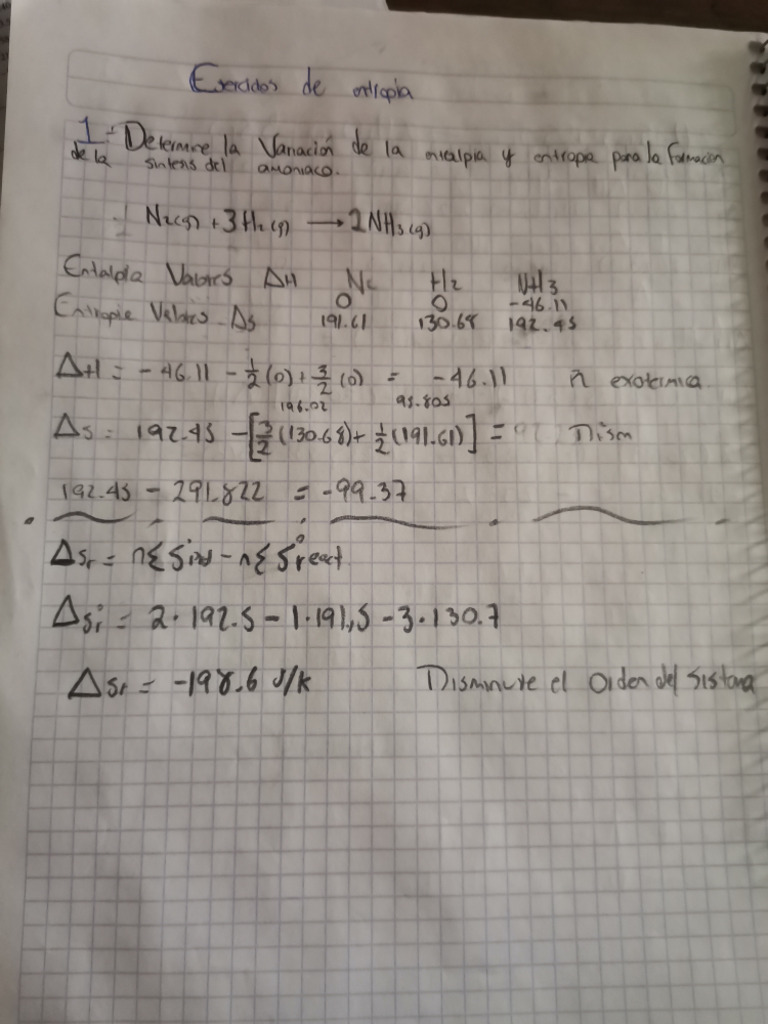 Ejercicios de entropia
1- Determine la Variación de la entalpia y entropia para la formacion
de la sintesis del amoniaco.
N₂(g) + 3H₂(g) → 2NH₃(g)
Entalpia Valores ΔH N₂ H₂ NH3
0 0 -46.11
Entropie Valores - Δs 191.61 130.68 192.45
ΔH = - 46.11 - 1/2 (0) + 3/2 (0) = - 46.11 exotermica
196.02 95.805
Δs = 192.45 - [3/2 (130.68) + 1/2 (191.61)] = Dism
192.45 - 291.822 = -99.37
ΔSr = n Σ S prod - n Σ S° react
ΔSr = 2 · 192.5 - 1 · 191,5 - 3 · 130.7
ΔSr = -198.6 J/K Disminuye el Orden del Sistema